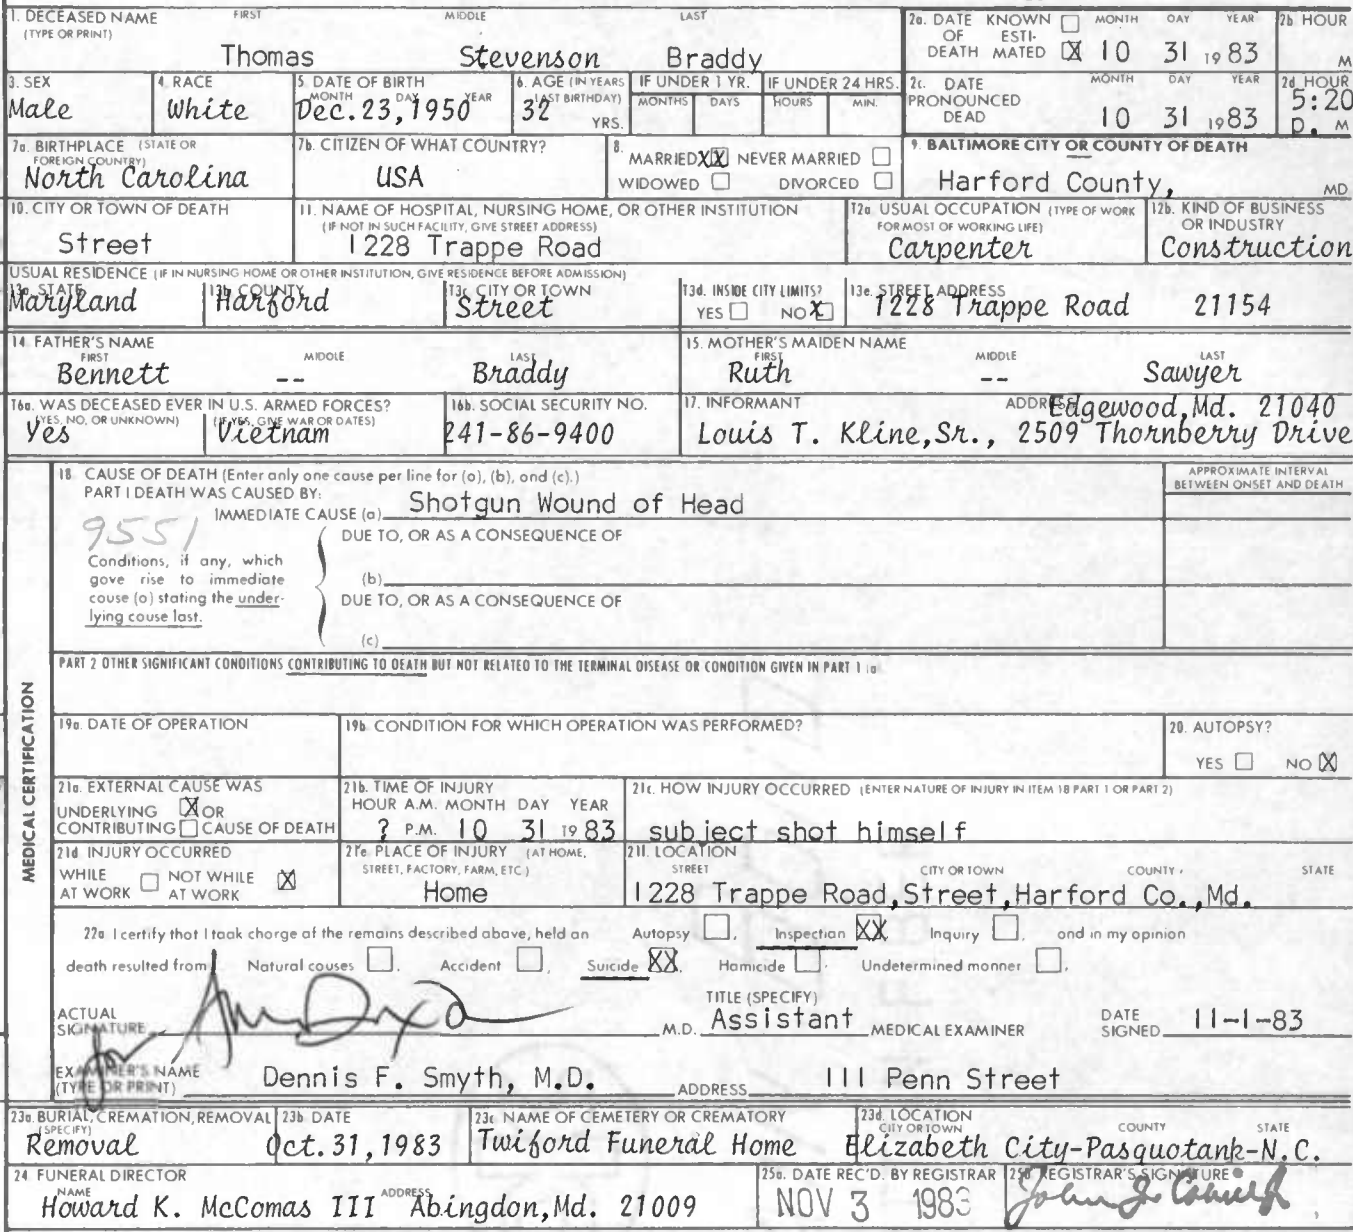 1. DECEASED NAME FIRST MIDDLE LAST
(TYPE OR PRINT)
Thomas Stevenson Braddy
2a. DATE KNOWN ☐ MONTH DAY YEAR
OF ESTI-
DEATH MATED ☒ 10 31 1983
2b HOUR
M
3. SEX
Male
4. RACE
White
5. DATE OF BIRTH
MONTH DAY YEAR
Dec. 23, 1950
6. AGE (IN YEARS
LAST BIRTHDAY)
32 YRS.
IF UNDER 1 YR.
MONTHS DAYS
IF UNDER 24 HRS.
HOURS MIN.
2c. DATE MONTH DAY YEAR
PRONOUNCED
DEAD 10 31 1983
2d HOUR
5:20
p. M
7a. BIRTHPLACE (STATE OR
FOREIGN COUNTRY)
North Carolina
7b. CITIZEN OF WHAT COUNTRY?
USA
8.
MARRIED XX NEVER MARRIED ☐
WIDOWED ☐ DIVORCED ☐
9. BALTIMORE CITY OR COUNTY OF DEATH
Harford County, MD
10. CITY OR TOWN OF DEATH
Street
11. NAME OF HOSPITAL, NURSING HOME, OR OTHER INSTITUTION
(IF NOT IN SUCH FACILITY, GIVE STREET ADDRESS)
1228 Trappe Road
12a. USUAL OCCUPATION (TYPE OF WORK
FOR MOST OF WORKING LIFE)
Carpenter
12b. KIND OF BUSINESS
OR INDUSTRY
Construction
USUAL RESIDENCE (IF IN NURSING HOME OR OTHER INSTITUTION, GIVE RESIDENCE BEFORE ADMISSION)
13a. STATE
Maryland
13b. COUNTY
Harford
13c. CITY OR TOWN
Street
13d. INSIDE CITY LIMITS?
YES ☐ NO ☒
13e. STREET ADDRESS
1228 Trappe Road 21154
14. FATHER'S NAME
FIRST MIDDLE LAST
Bennett -- Braddy
15. MOTHER'S MAIDEN NAME
FIRST MIDDLE LAST
Ruth -- Sawyer
16a. WAS DECEASED EVER IN U.S. ARMED FORCES?
(YES, NO, OR UNKNOWN) (IF YES, GIVE WAR OR DATES)
Yes Vietnam
16b. SOCIAL SECURITY NO.
241-86-9400
17. INFORMANT ADDRESS
Edgewood, Md. 21040
Louis T. Kline, Sr., 2509 Thornberry Drive
MEDICAL CERTIFICATION
18. CAUSE OF DEATH (Enter only one cause per line for (a), (b), and (c).)
PART I DEATH WAS CAUSED BY:
IMMEDIATE CAUSE (a) Shotgun Wound of Head
APPROXIMATE INTERVAL
BETWEEN ONSET AND DEATH
9551
DUE TO, OR AS A CONSEQUENCE OF
Conditions, if any, which
gave rise to immediate
cause (a) stating the under-
lying cause last.
(b)
DUE TO, OR AS A CONSEQUENCE OF
(c)
PART 2 OTHER SIGNIFICANT CONDITIONS CONTRIBUTING TO DEATH BUT NOT RELATED TO THE TERMINAL DISEASE OR CONDITION GIVEN IN PART 1 (a)
19a. DATE OF OPERATION
19b. CONDITION FOR WHICH OPERATION WAS PERFORMED?
20. AUTOPSY?
YES ☐ NO ☒
21a. EXTERNAL CAUSE WAS
UNDERLYING ☒ OR
CONTRIBUTING ☐ CAUSE OF DEATH
21b. TIME OF INJURY
HOUR A.M. MONTH DAY YEAR
? P.M. 10 31 1983
21c. HOW INJURY OCCURRED (ENTER NATURE OF INJURY IN ITEM 18 PART 1 OR PART 2)
subject shot himself
21d INJURY OCCURRED
WHILE ☐ NOT WHILE ☒
AT WORK AT WORK
21e PLACE OF INJURY (AT HOME,
STREET, FACTORY, FARM, ETC.)
Home
21f. LOCATION
STREET CITY OR TOWN COUNTY STATE
1228 Trappe Road, Street, Harford Co., Md.
22a I certify that I took charge of the remains described above, held an Autopsy ☐, Inspection XX Inquiry ☐, and in my opinion
death resulted from Natural causes ☐, Accident ☐, Suicide XX, Homicide ☐, Undetermined manner ☐,
ACTUAL
SIGNATURE M.D.
TITLE (SPECIFY)
Assistant MEDICAL EXAMINER
DATE
SIGNED 11-1-83
for
EXAMINER'S NAME
(TYPE OR PRINT) Dennis F. Smyth, M.D. ADDRESS 111 Penn Street
23a. BURIAL, CREMATION, REMOVAL
(SPECIFY)
Removal
23b DATE
Oct. 31, 1983
23c NAME OF CEMETERY OR CREMATORY
Twiford Funeral Home
23d. LOCATION
CITY OR TOWN COUNTY STATE
Elizabeth City-Pasquotank-N.C.
24 FUNERAL DIRECTOR
NAME ADDRESS
Howard K. McComas III Abingdon, Md. 21009
25a. DATE REC'D. BY REGISTRAR
NOV 3 1983
25b REGISTRAR'S SIGNATURE
John J.